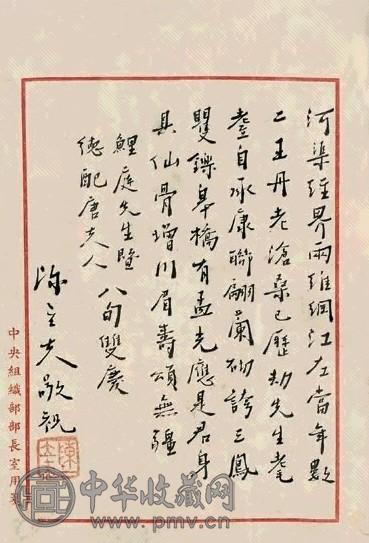 河渠經界兩維綱江左當年數
二王丹老滄桑已歷劫先生耄
耋自承康聯翩蘭砌誇三鳳
矍鑠皋橋有孟光應是君身
具仙骨增川眉壽頌無疆
鯉庭先生暨
德配唐夫人八旬雙慶
陳立夫敬祝
中央組織部部長室用箋
中华收藏网
www.pmv.cn